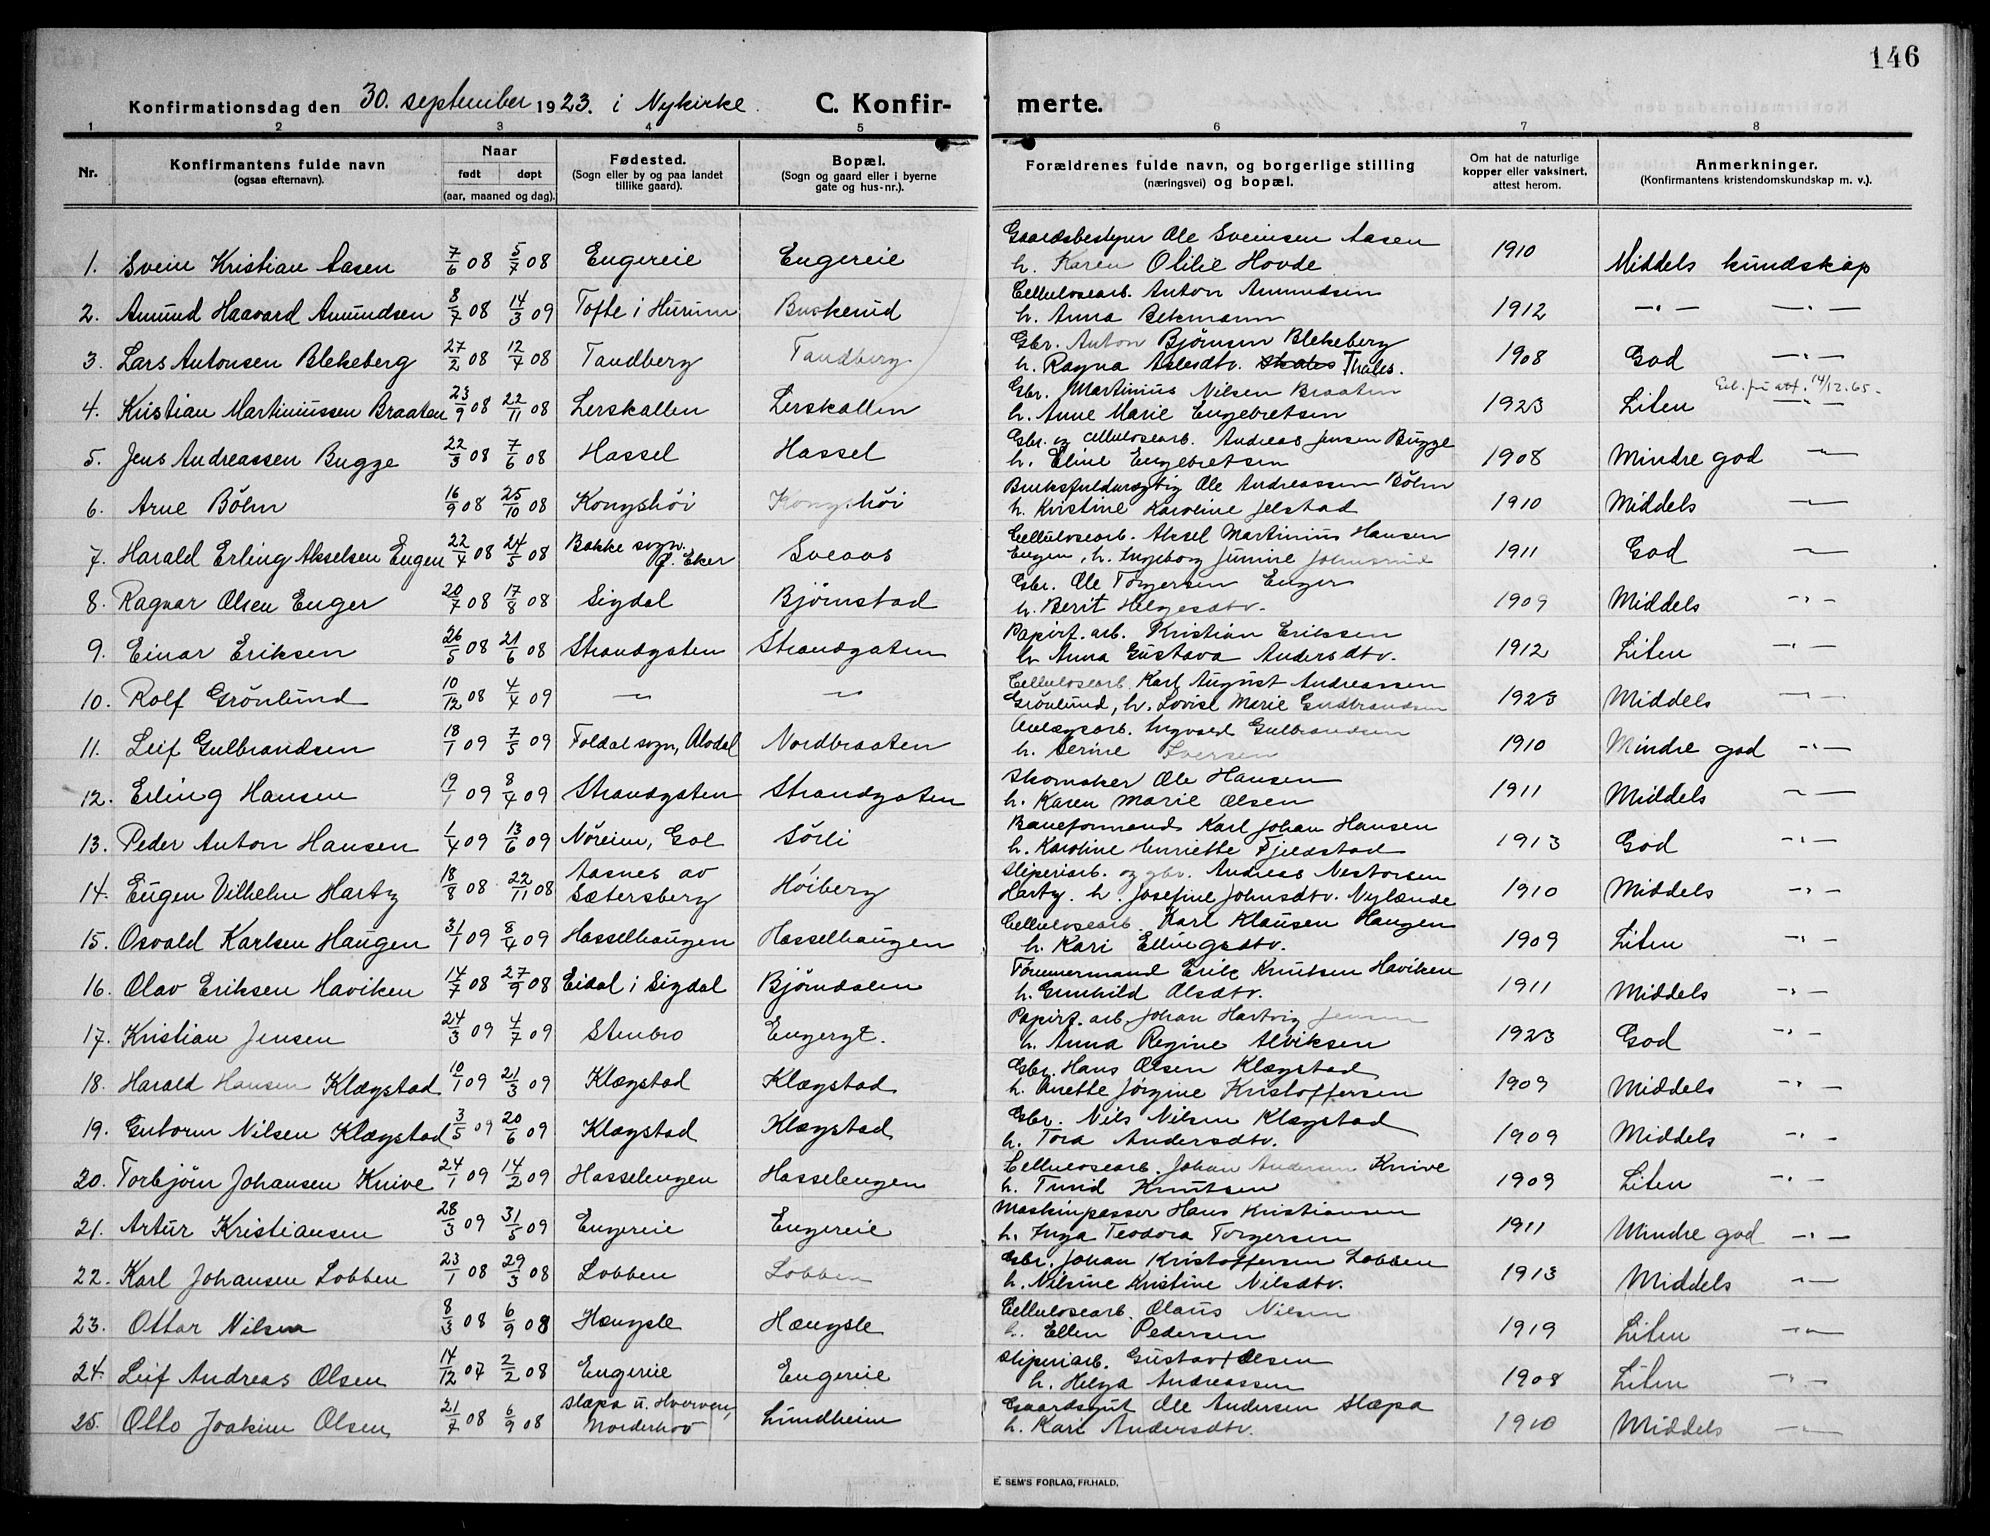 146
Konfirmationsdag den 30. september 1923. i Nykirke. C. Konfirmerte.
1 2 3 4 5 6 7 8
Nr. Konfirmantens fulde navn (ogsaa efternavn). Naar født døpt (aar, maaned og dag). Fødested. (Sogn eller by og paa landet tillike gaard). Bopæl. (Sogn og gaard eller i byerne gate og hus-nr.). Forældrenes fulde navn, og borgerlige stilling (næringsvei) og bopæl. Om hat de naturlige kopper eller vaksinert, attest herom. Anmerkninger. (Konfirmantens kristendomskundskap m. v.).
1. Svein Kristian Aasen 7/6 08 5/7 08 Engereie Engereie Gaardsbestyrer Ole Sveinsen Aasen h. Karen Otilie Hovde 1910 Middels kundskap
2. Amund Haavard Amundsen 8/7 08 14/3 09 Tofte i Hurum Buskerud Cellulosearb. Anton Amundsen h. Anna Bekmann 1912 -"- -"-
3. Lars Antonsen Blekeberg 27/2 08 12/4 08 Tandberg Tandberg Gbr. Anton Bjørnsen Blekeberg h. Ragna Aslesdtr. Skales Thales. 1908 God -"-
4. Kristian Martiniussen Braaten 23/9 08 22/11 08 Lerskallen Lerskallen Gbr. Martinius Nilsen Braaten h. Anne Marie Engebretsen 1923 Liten -"- 14/12.65.
5. Jens Andreassen Bugge 22/3 08 7/6 08 Hassel Hassel Gbr. og cellulosearb. Andreas Jensen Bugge h. Eline Engebretsen 1908 Mindre god -"-
6. Arne Böhn 16/9 08 25/10 08 Kongshöi Kongshöi Bruksfuldmægtig Ole Andreassen Böhn h. Kristine Karoline Jelstad 1910 Middels -"-
7. Harald Erling Akselsen Engen 22/4 08 24/5 08 Bakke sogn. Ø. Eker Sveaas Cellulosearb. Aksel Martinius Hansen Engen, h. Ingeborg Junine Johnsrud 1911 God -"-
8. Ragvar Olsen Enger 20/7 08 17/8 08 Sigdal Bjørnstad Gbr. Ole Torgersen Enger h. Berit Helgesdtr. 1909 Middels -"-
9. Einar Eriksen 26/5 08 21/6 08 Strandgaten Strandgaten Papirf. arb. Kristian Eriksen h. Anna Gustava Andersdtr. 1912 Liten -"-
10. Rolf Grönlund 10/12 08 4/4 09 -"- -"- Cellulosearb. Karl August Andreassen Grönlund, h. Lovise Marie Gudbrandsen 1923 Middels -"-
11. Leif Gulbrandsen 18/1 09 7/5 09 Foldal sogn, Alvdal Nordbraaten Anlægsarb. Ingvald Gulbrandsen h. Serine Iversen 1910 Mindre god -"-
12. Erling Hansen 19/1 09 8/4 09 Strandgaten Strandgaten Skomaker Ole Hansen h. Karen Marie Olsen 1911 Middels -"-
13. Peder Anton Hansen 1/4 09 13/6 09 Nöreim, Gol Sörli Baneformand Karl Johan Hansen h. Karoline Henriette Fjeldstad 1913 God -"-
14. Eugen Vilhelm Harty 18/8 08 22/11 08 Aasnes av Sætersberg Höiberg Sliperiarb. og gbr. Andreas Nestorsen Harty. h. Josefine Johnsdtr. Nylænde 1910 Middels -"-
15. Osvald Karlsen Haugen 31/1 09 8/4 09 Hasselhaugen Hasselhaugen Cellulosearb. Karl Klausen Haugen h. Kari Ellingsdtr. 1909 Liten -"-
16. Olav Eriksen Haviken 14/7 08 27/9 08 Eidal i Sigdal Bjørndalen Tömmermand Erik Knutsen Haviken h. Gunhild Olsdtr. 1911 Middels -"-
17. Kristian Jensen 24/3 09 4/7 09 Stenbro Engergt. Papirf. arb. Johan Hartvig Jensen h. Anna Regine Alviksen 1923 God -"-
18. Harald Hansen Klægstad 10/1 09 21/3 09 Klægstad Klægstad Gbr. Hans Olsen Klægstad h. Anette Jørgine Kristoffersen 1909 Middels -"-
19. Gutorm Nilsen Klægstad 3/5 09 20/6 09 Klægstad Klægstad Gbr. Nils Nilsen Klægstad h. Tora Andersdtr. 1909 Middels -"-
20. Torbjörn Johansen Knive 24/1 09 14/2 09 Hasselengen Hasselengen Cellulosearb. Johan Andersen Knive h. Turid Knutsen 1909 Liten -"-
21. Artur Kristiansen 28/3 09 31/5 09 Engereie Engereie Maskinpasser Hans Kristiansen h. Inga Teodora Torgersen 1911 Mindre god -"-
22. Karl Johansen Lobben 23/1 08 29/3 08 Lobben Lobben Gbr. Johan Kristoffersen Lobben h. Nilsine Kristine Nilsdtr. 1913 Middels -"-
23. Ottar Nilsen 8/3 08 6/9 08 Hængsle Hængsle Cellulosearb. Olaus Nilsen h. Ellen Pedersen 1919 Liten -"-
24. Leif Andreas Olsen 14/12 07 2/2 08 Engereie Engereie Sliperiarb. Gustav Olsen h. Helga Andreassen 1908 Liten -"-
25. Otto Joakim Olsen 21/7 08 6/9 08 Slæpa u. Hverven, Norderhov Lindheim Gaardsgut Ole Andersen Slæpa h. Kari Andersdtr. 1910 Middels -"-
E. SEM'S FORLAG, FR.HALD.